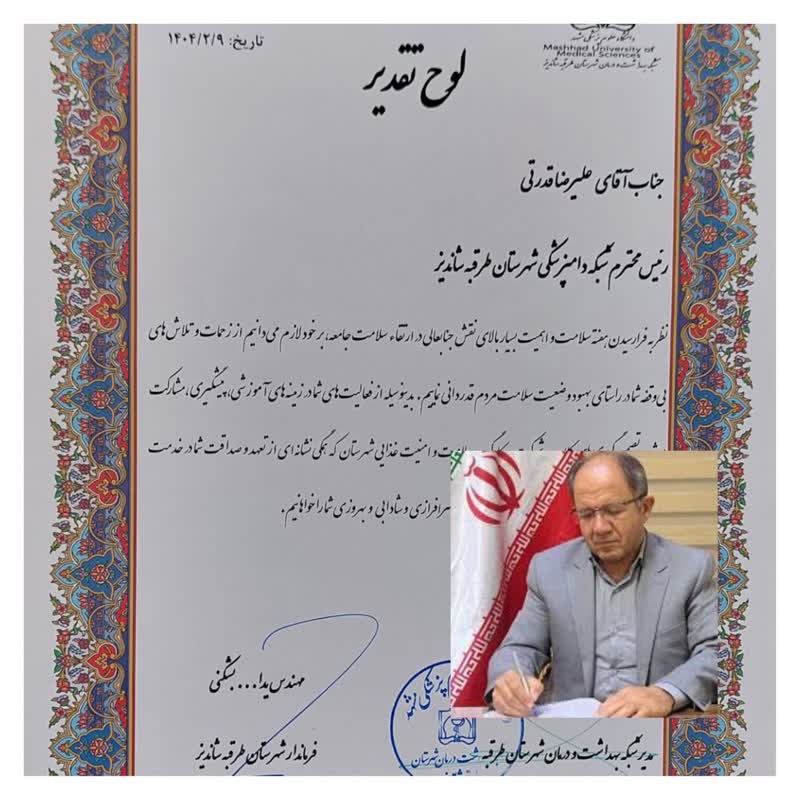 دانشگاه علوم پزشکی مشهد
Mashhad University of
Medical Sciences
شبکه بهداشت و درمان شهرستان طرقبه شاندیز
تاریخ: ۱۴۰۴/۲/۹
لوح تقدیر
جناب آقای علیرضا قدرتی
رئیس محترم شبکه دامپزشکی شهرستان طرقبه شاندیز
نظر به فرارسیدن هفته سلامت و اهمیت بسیار بالای نقش جنابعالی در ارتقاء سلامت جامعه، بر خود لازم می دانیم از زحمات و تلاش های
بی وقفه شما در راستای بهبود وضعیت سلامت مردم قدردانی نماییم. بدینوسیله از فعالیت های شما در زمینه های آموزشی، پیشگیری، مشارکت
و امنیت غذایی شهرستان که همگی نشانه ای از تعهد و صداقت شما در خدمت
سرافرازی و شادابی و بهروزی شما را خواهانیم.
مهندس یدا... بشکنی
فرماندار شهرستان طرقبه شاندیز
مدیر شبکه بهداشت و درمان شهرستان طرقبه